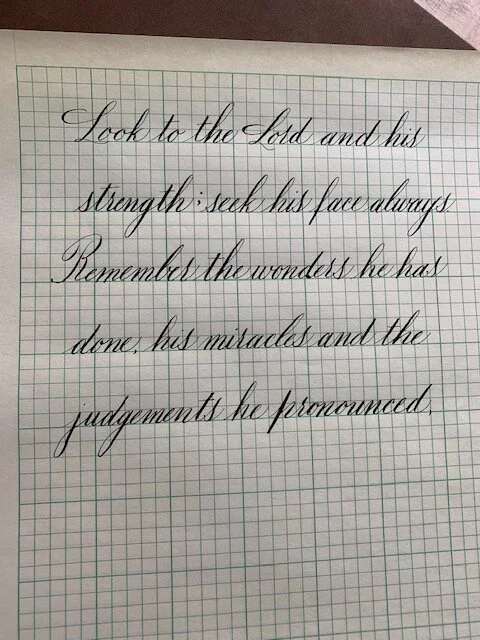 Look to the Lord and his
strength; seek his face always.
Remember the wonders he has
done, his miracles and the
judgements he pronounced.